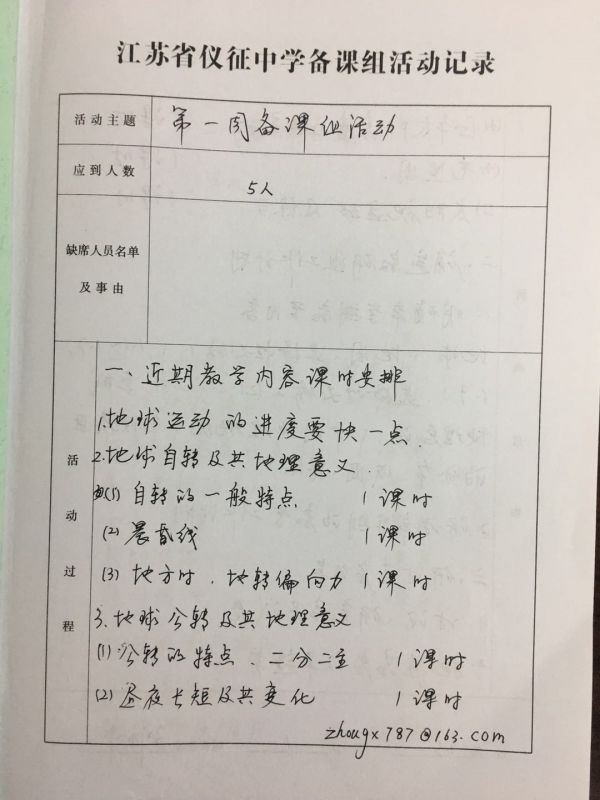 江苏省仪征中学备课组活动记录
活动主题
第一周备课组活动
应到人数
5人
缺席人员名单
及事由
活动过程
一、近期教学内容课时安排
1.地球运动的进度要快一点.
2.地球自转及其地理意义.
(1)自转的一般特点 1课时
(2)晨昏线 1课时
(3)地方时、地转偏向力 1课时
3.地球公转及其地理意义
(1)公转的特点、二分二至 1课时
(2)昼夜长短及其变化 1课时
zhougx787@163.com